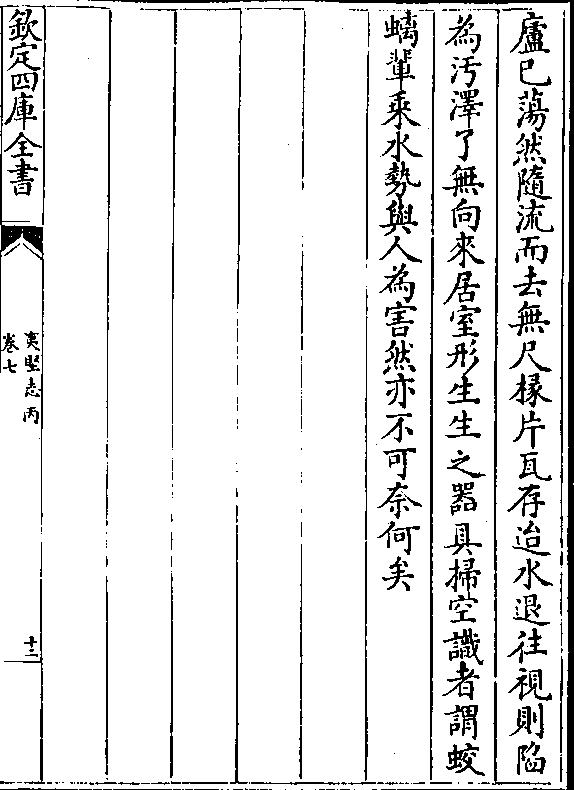 廬已蕩然隨流而去無尺椽片瓦存迨水退往視則陷
為汚澤了無向來居室形生生之器具掃空識者謂蛟
螭輩乘水勢與人為害然亦不可奈何矣
欽定四庫全書
夷堅志丙
卷七
十三